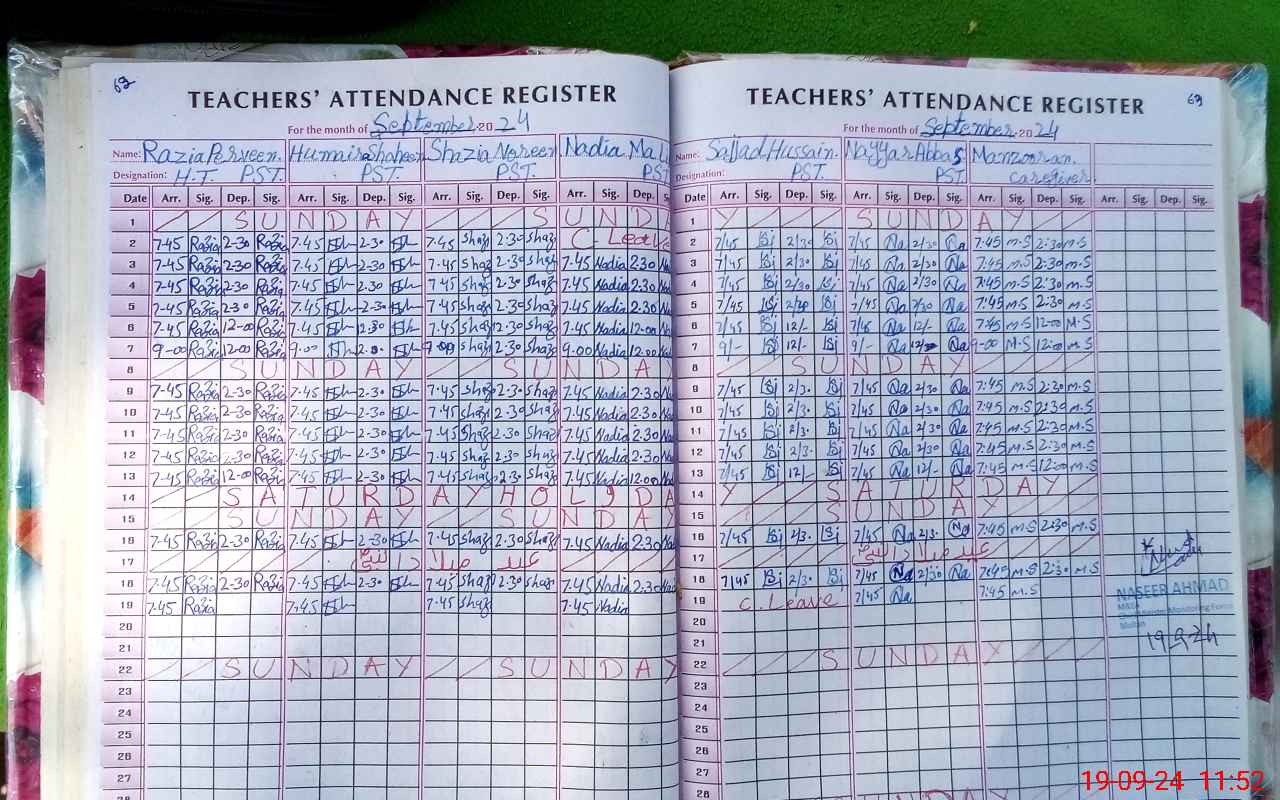 62
TEACHERS' ATTENDANCE REGISTER
For the month of September 2024
Name: Razia Perveen. Humaira Shaheen Shazia Noreen Nadia Ma
Designation: H.T. PST. PST. PST. PST
Date Arr. Sig. Dep. Sig. Arr. Sig. Dep. Sig. Arr. Sig. Dep. Sig. Arr. Sig. Dep.
1 SUNDAY SUND
2 7-45 Razia 2-30 Razia 7.45 2-30 7.45 Shaz 2.30 Shaz C. Leave
3 7-45 Razia 2-30 Razia 7.45 2-30 7.45 Shaz 2.30 Shaz 7.45 Nadia 2.30 Na
4 7-45 Razia 2-30 Razia 7.45 2-30 7.45 Shaz 2.30 Shaz 7.45 Nadia 2.30 Na
5 7-45 Razia 2-30 Razia 7.45 2-30 7.45 Shaz 2.30 Shaz 7.45 Nadia 2.30 Na
6 7-45 Razia 12-00 Razia 7.45 7.45 Shaz Shaz 7.45 Nadia 12.00 Na
7 9-00 Razia 12-00 Razia 9.00 9.00 Shaz Shaz 9.00 Nadia 12.00 Na
8 SUNDAY SUNDAY
9 7-45 Razia 2-30 Razia 7.45 2-30 7.45 Shaz 2.30 Shaz 7.45 Nadia 2.30 Na
10 7-45 Razia 2-30 Razia 7.45 2-30 7.45 Shaz 2.30 Shaz 7.45 Nadia 2.30 Na
11 7-45 Razia 2-30 Razia 7.45 2-30 7.45 Shaz 2.30 Shaz 7.45 Nadia 2.30 Na
12 7-45 Razia 2-30 Razia 7.45 2-30 7.45 Shaz 2.30 Shaz 7.45 Nadia 2.30 Na
13 7-45 Razia 12-00 Razia 7.45 2-30 7.45 Shaz 2.30 Shaz 7.45 Nadia 12.00 Na
14 SATURDAY HOLIDA
15 SUNDAY SUNDAY
16 7-45 Razia 2-30 Razia 7.45 2-30 7.45 Shaz 2.30 Shaz 7.45 Nadia 2.30 Na
17 عید میلاد النبی
18 7-45 Razia 2-30 Razia 7.45 2-30 7.45 Shaz 2.30 Shaz 7.45 Nadia 2.30 Nadia
19 7-45 Razia 7.45 7.45 Shaz 7.45 Nadia
20
21
22 SUNDAY SUNDAY
23
24
25
26
27
28
69
TEACHERS' ATTENDANCE REGISTER
For the month of September 2024
Name: Sajjad Hussain. Nayyar Abbas Manzooran.
Designation: PST. PST. caregiver
Date Arr. Sig. Dep. Sig. Arr. Sig. Dep. Sig. Arr. Sig. Dep. Sig. Arr. Sig. Dep. Sig.
1 Y SUNDAY
2 7/45 Sj 2/30 Sj 7/45 Na 2/30 Na 7:45 M.S 2:30 M.S
3 7/45 Sj 2/30 Sj 7/45 Na 2/30 Na 7:45 M.S 2:30 M.S
4 7/45 Sj 2/30 Sj 7/45 Na 2/30 Na 7:45 M.S 2:30 M.S
5 7/45 Sj 2/30 Sj 7/45 Na 2/30 Na 7:45 M.S 2:30 M.S
6 7/45 Sj 12/- Sj 7/45 Na 12/- Na 7:45 M.S 12:00 M.S
7 9/- Sj 12/- Sj 9/- Na Na 9-00 M.S 12:00 M.S
8 SUNDAY
9 7/45 Sj 2/30 Sj 7/45 Na 2/30 Na 7:45 M.S 2:30 M.S
10 7/45 Sj 2/30 Sj 7/45 Na 2/30 Na 7:45 M.S 2:30 M.S
11 7/45 Sj 2/3. Sj 7/45 Na 2/30 Na 7:45 M.S 2:30 M.S
12 7/45 Sj 2/3. Sj 7/45 Na 2/30 Na 7:45 M.S 2:30 M.S
13 7/45 Sj 12/- Sj 7/45 Na 12/- Na 7:45 M.S 12:00 M.S
14 Y SATURDAY
15 SUNDAY
16 7/45 Sj 2/3. Sj 7/45 Na 2/3. Na 7:45 M.S 2:30 M.S
17 عید میلاد النبی
18 7/45 Sj 2/30 Sj 7/45 Na 2/30 Na 7:45 M.S 2:30 M.S
19 C. Leave 7/45 Na 7:45 M.S
NASEER AHMAD
MEA
Chief Minister Monitoring Force
Multan
19-9-24
20
21
22 SUNDAY
23
24
25
26
27
28
19-09-24 11:52